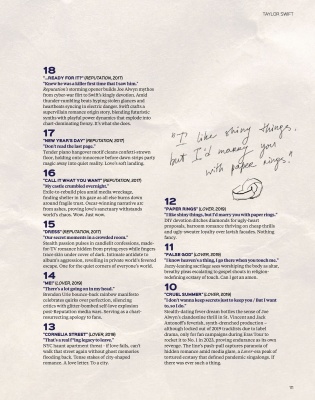 TAYLOR SWIFT
18
"...READY FOR IT?" (REPUTATION, 2017)
"Knew he was a killer first time that I saw him."
Reputation's storming opener builds Joe Alwyn mythos
from cyber-war flirt to Swift's kingly devotion. Amid
thunder-rumbling beats
synths with playful power dynamics that explode into
chart-dominating frenzy. It's what she does.
17
"NEW YEAR'S DAY" (REPUTATION, 2017)
"Don't read the last page."
Tender piano hangover motif cleans confetti-strewn
floor, holding onto innocence before dawn strips party
magic away into quiet reality. Love's soft landing.
16
"CALL IT WHAT YOU WANT" (REPUTATION, 2017)
"My castle crumbled overnight."
Exile-to-rebuild plea amid media wreckage,
finding shelter in his gaze as all else burns down
around fragile trust.
from ashes, proving love's sanctuary withstands
world's chaos. Wow. Just wow.
15
"DRESS" (REPUTATION, 2017)
"Our secret moments in a crowded room."
Stealth passion pulses in candlelit confessions, made-
for-TV romance hidden from prying eyes while fingers
trace skin under cover of dark. Intimate antidote to
album's aggression, revelling in private world's fevered
escape. One for the quiet corners of everyone's world.
14
"ME!" (LOVER, 2019)
"There's a lot going on in my head."
Brendon Urie bounce-back rainbow manifesto
celebrates quirks over perfection, silencing
critics with glitter-bombed self-love explosion
post-Reputation media wars. Serving as a chart-
resurrecting apology to fans.
13
"CORNELIA STREET" (LOVER, 2019)
NYC haunt apartment threat - if love fails, can't
walk that street again without ghost memories
flooding back. Tense stakes of city-shaped
romance. A love letter. To a city.
"I like shiny things,
but I'd marry you
with paper rings."
12
"PAPER RINGS" (LOVER, 2019)
"I like shiny things, but I'd marry you with paper rings."
DIY devotion ditches diamonds for ugly-heart
proposals, baroque romance thriving on cheap thrills
and ugly-sweater loyalty over lavish facades. Nothing
fancy.
11
"FALSE GOD" (LOVER, 2019)
Jazzy-leaning sacrilege sees worshipping the body as altar,
breathy pleas escalating to gospel clouds in religion-
redefining ecstasy of touch. Can I get an amen.
10
"CRUEL SUMMER" (LOVER, 2019)
"I don't wanna keep secrets just to keep you / But I want
to, so I do."
Stealth-dating fever dream bottles the sense of Joe
Alwyn's clandestine thrill in St. Vincent and Jack
Antonoff's feverish, synth-drenched production -
although locked out of 2019 tracklists due to label
drama, only for fan campaigns during Eras Tour to
rocket it to No. 1 in 2023, proving endurance as its own
revenge. The line's push-pull captures paranoia of
hidden romance amid media glare, a Lover-era peak of
tortured ecstasy that defined pandemic singalongs. If
there was ever such a thing.